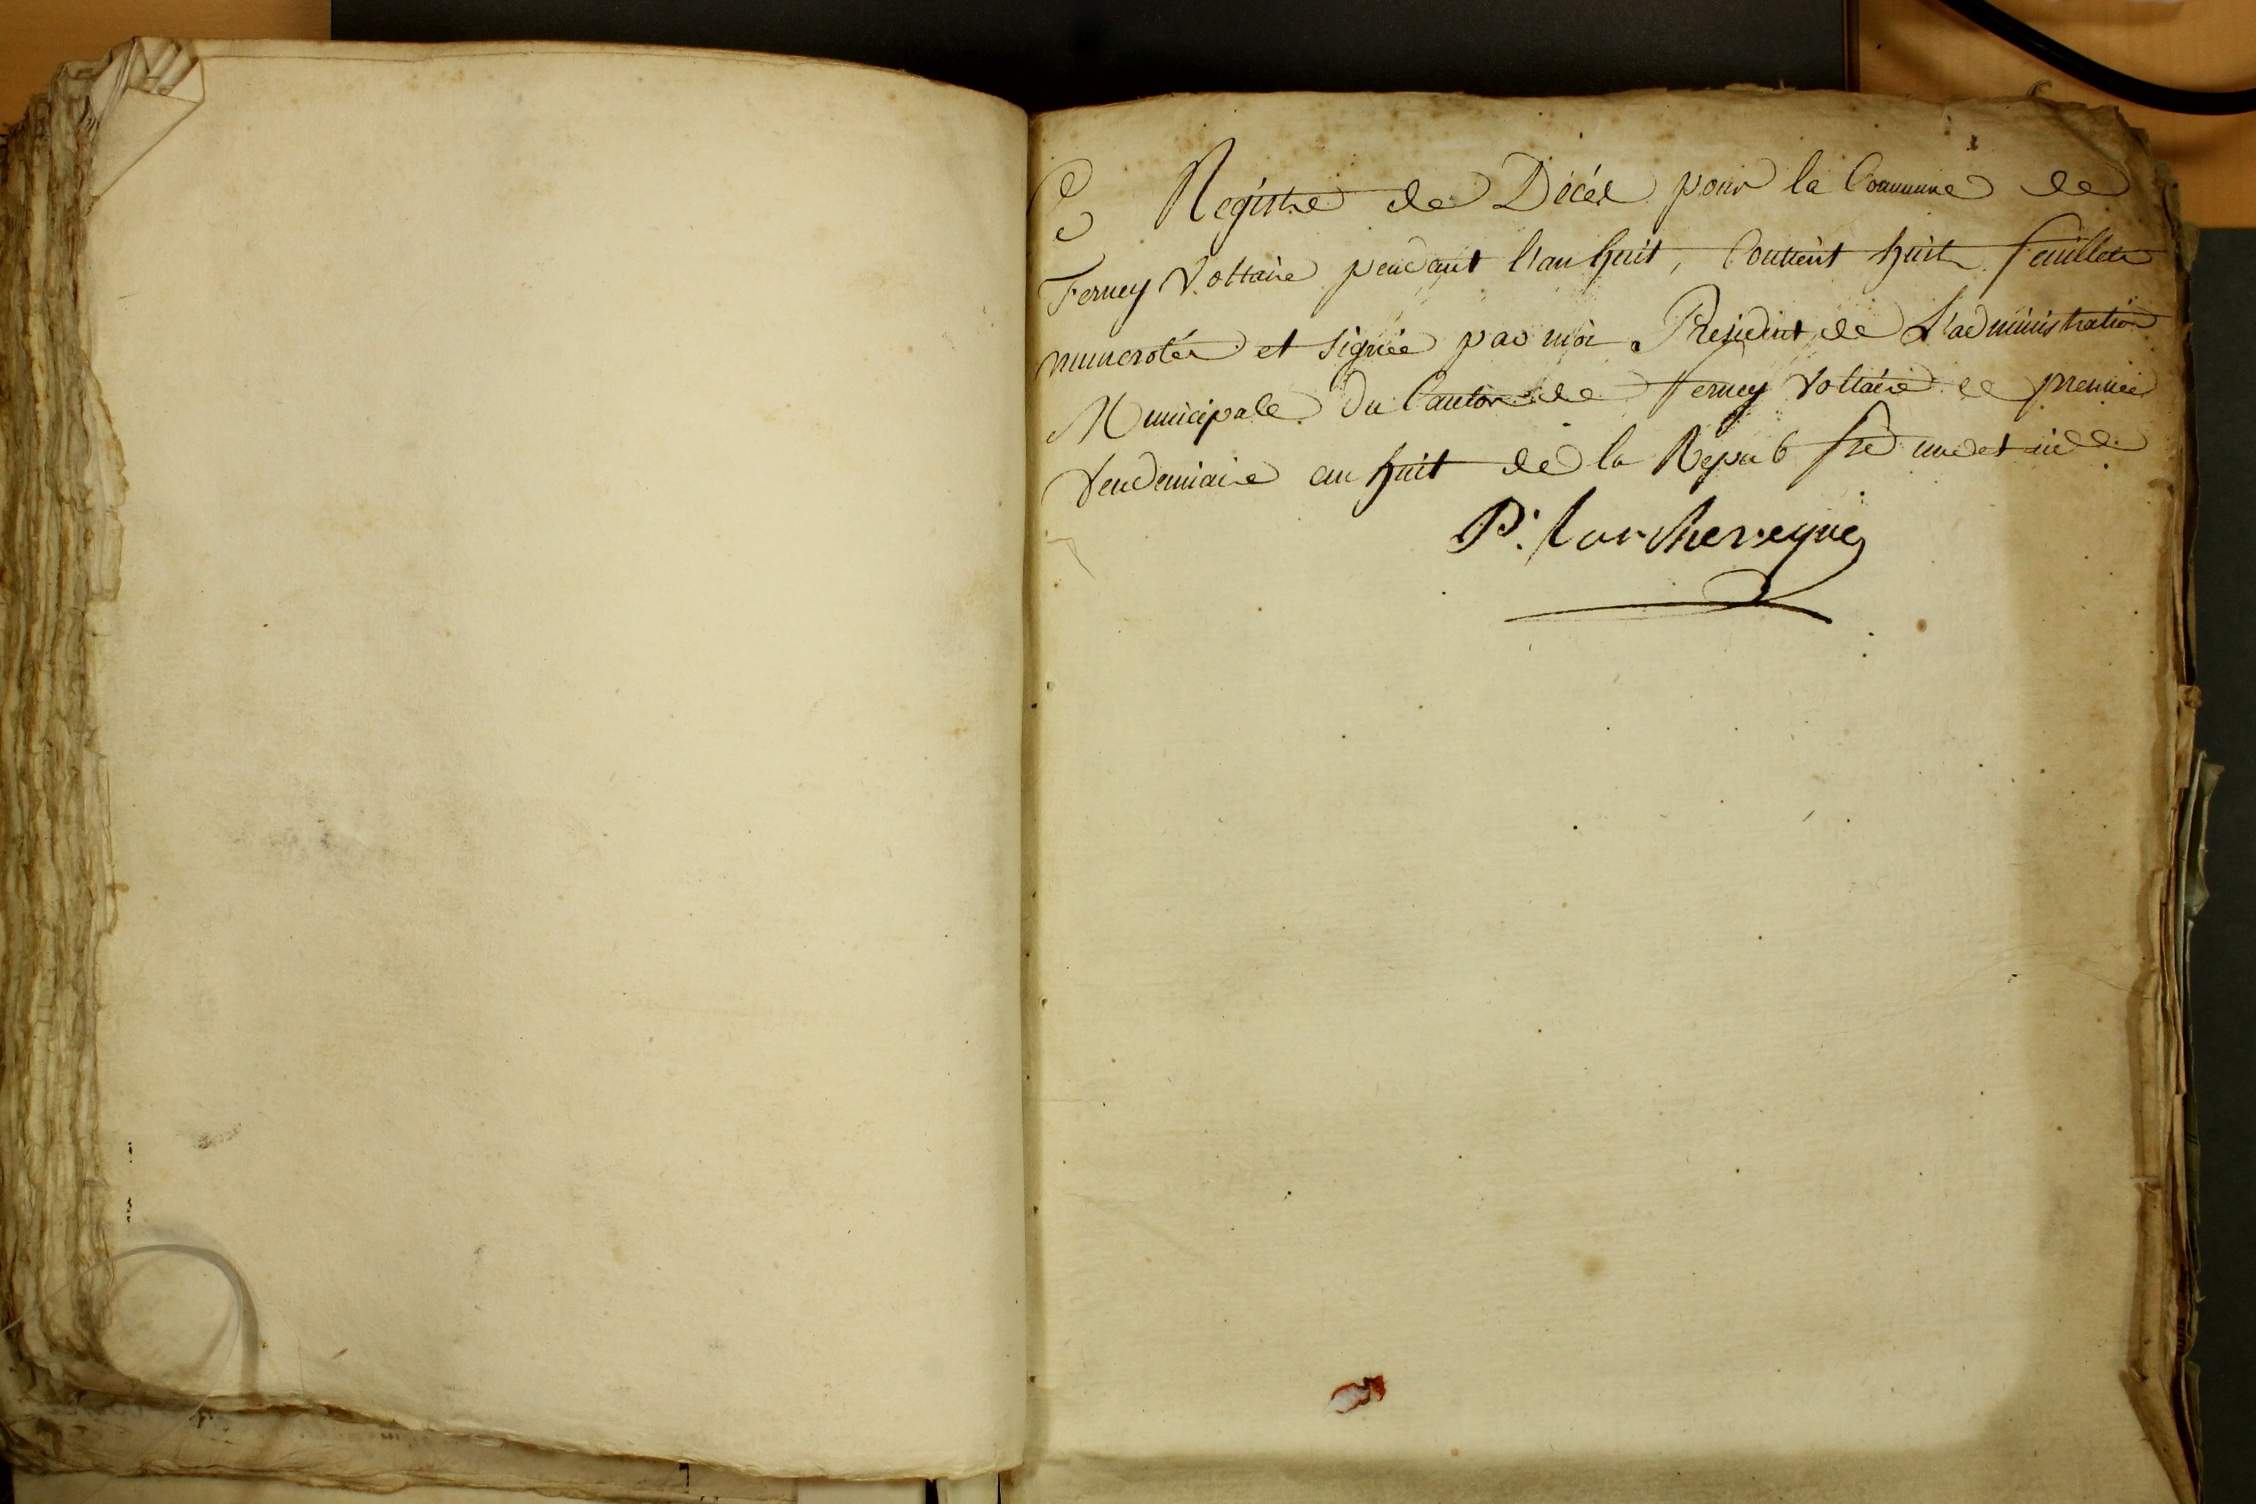 Ce Registre de Décès pour la Commune de
Ferney Voltaire pendant l'an huit, Contient huit feuillets
numerotés et signée par moi President de L'administration
Municipale du Canton de Ferney Voltaire le premier
Vendemiaire an huit de la Repub fse une et ind.